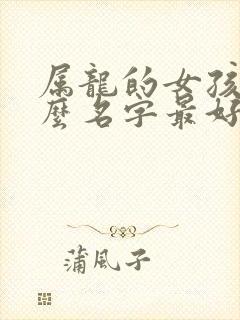 属龍的女孩
麼名字最好
蒲風子